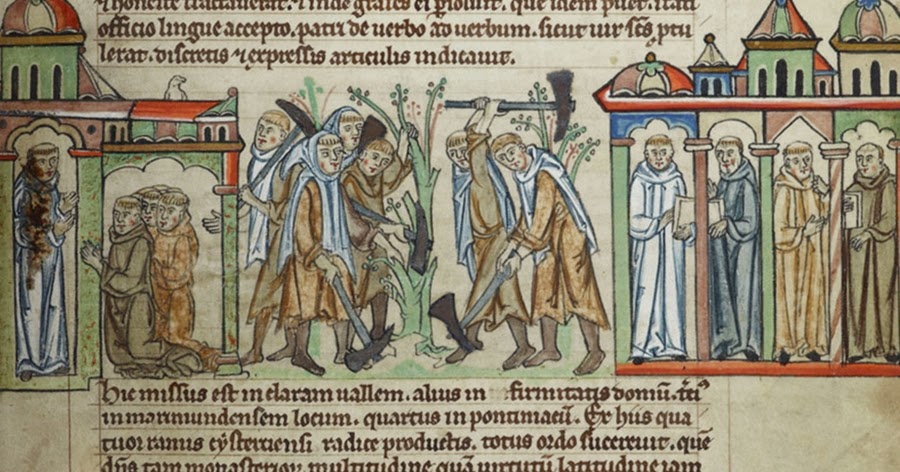 honeste tractauerat. inde grates ei que idem puer.
officio lingue accepto. patri de uerbo ad uerbum. sicut uir scs ptu
lerat. discretis ⁊ expressis articulis indicauit.
Hic missus est in claram uallem. alius in firmitatis domū. tci⁹
in marimundensem locum. quartus in pontimacū. Ex hiis qua
tuor ramis cysterciensi radice productis. totus ordo succreuit. quē
dn̄s tam multitudine quā uirtutū latitudine iam